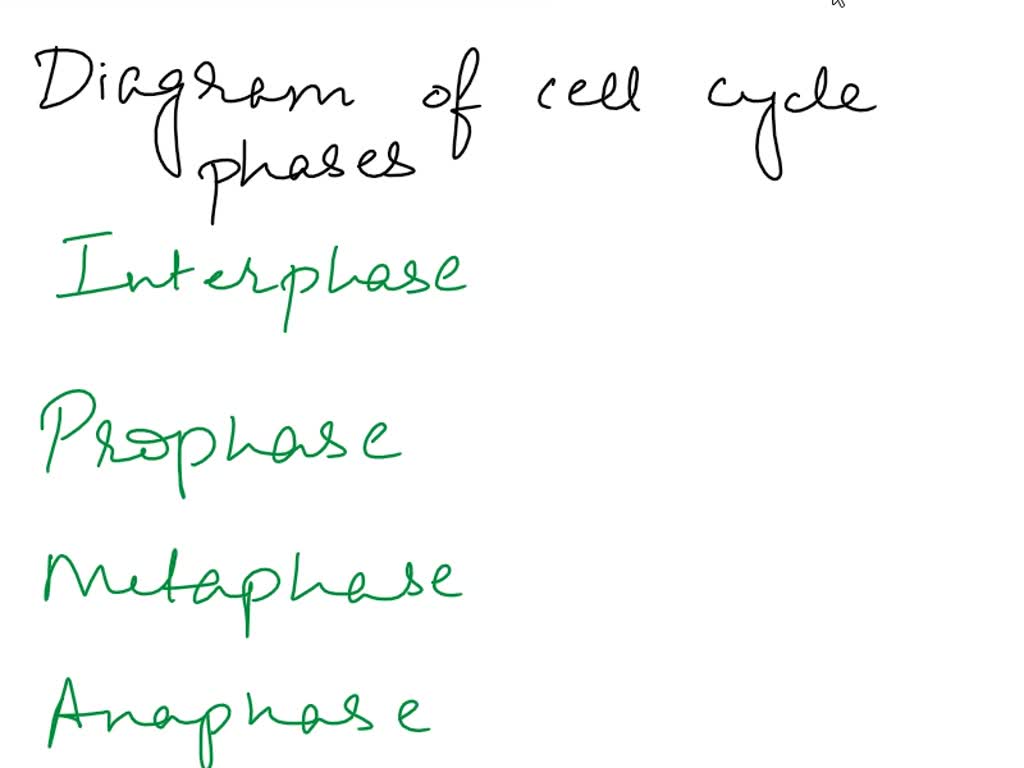 Diagram of cell cycle
phases
Interphase
Prophase
Metaphase
Anaphase